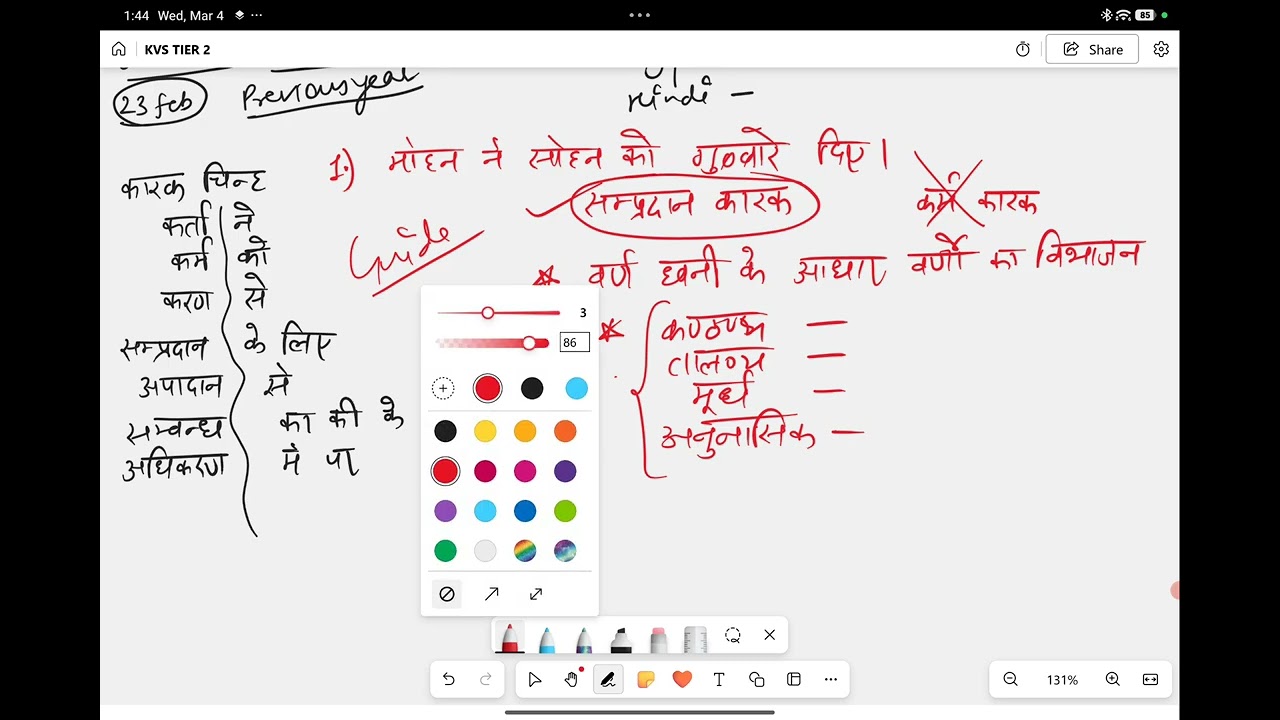 1:44 Wed, Mar 4
85
KVS TIER 2
Share
23 feb Previous year
Hindi –
कारक चिन्ह
कर्ता ने
कर्म को
करण से
सम्प्रदान के लिए
अपादान से
सम्बन्ध का की के
अधिकरण में पर
1.) मोहन ने सोहन को गुब्बारे दिए।
सम्प्रदान कारक
कर्म कारक
Guide
वर्ण ध्वनी के आधार वर्णों का विभाजन
कण्ठ्य —
तालव्य —
मूर्ध —
अनुनासिक —
3
86
131%